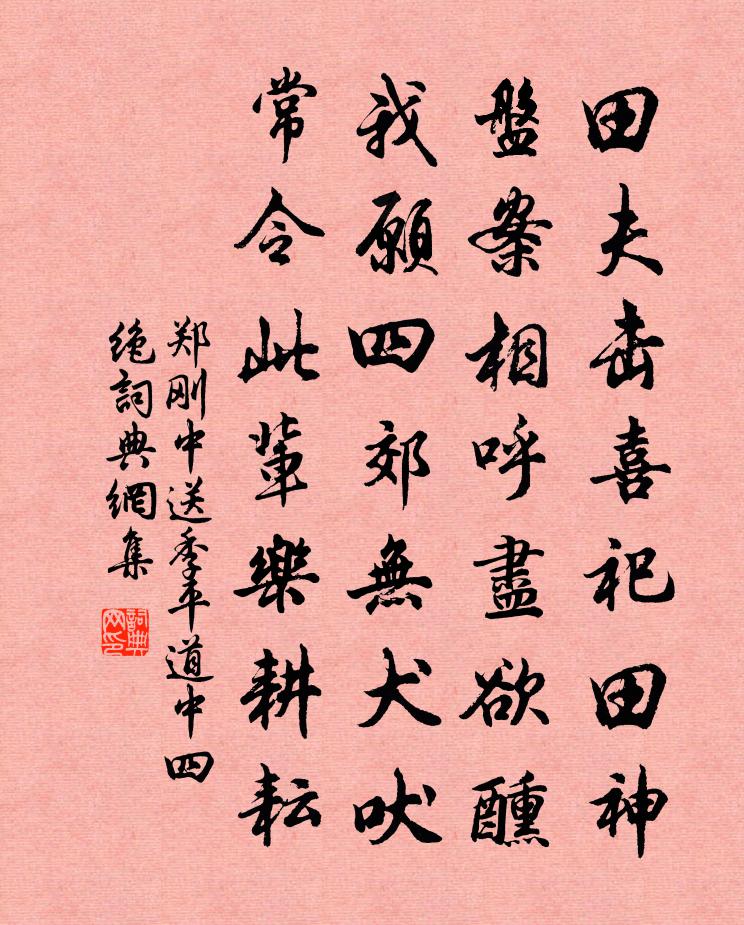 田夫击喜祀田神
盤案相呼盡欲醺
我願四郊無犬吠
常令此輩樂耕耘
郑刚中送季平道中四
绝詞典網集
詞典网印